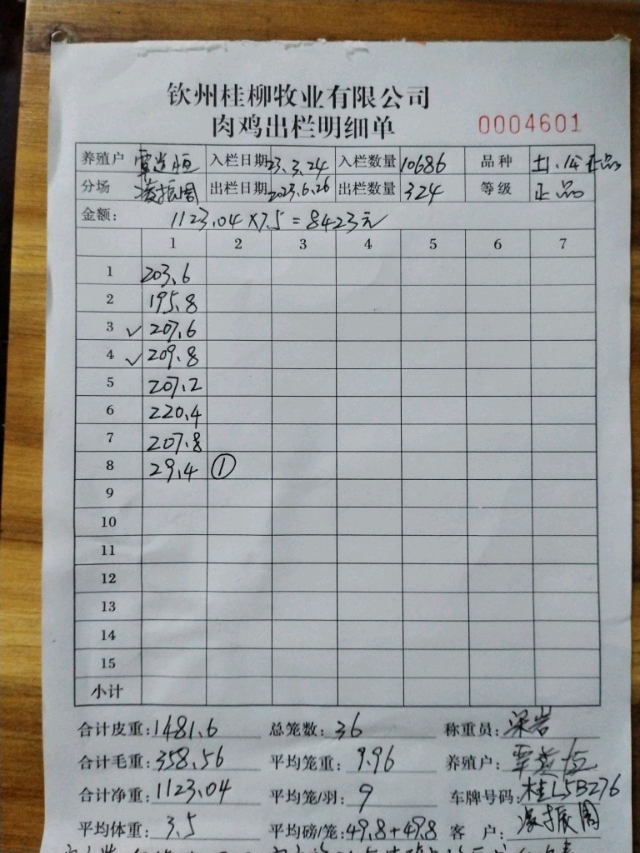 钦州桂柳牧业有限公司
肉鸡出栏明细单 0004601
养殖户 入栏日期 23.3.24 入栏数量 10686 品种 土.1.4 正品
分场 凌振周 出栏日期 2023.6.26 出栏数量 324 等级 正品
金额: 1123.04×7.5=8423元
1 2 3 4 5 6 7
1 203.6
2 195.8
3 ✓ 207.6
4 ✓ 209.8
5 207.2
6 220.4
7 207.8
8 29.4 ①
9
10
11
12
13
14
15
小计
合计皮重: 1481.6 总笼数: 36 称重员: 梁岩
合计毛重: 358.56 平均笼重: 9.96 养殖户:
合计净重: 1123.04 平均笼/羽: 9 车牌号码: 桂L5B276
平均体重: 3.5 平均磅/笼: 49.8+49.8 客户: 凌振周